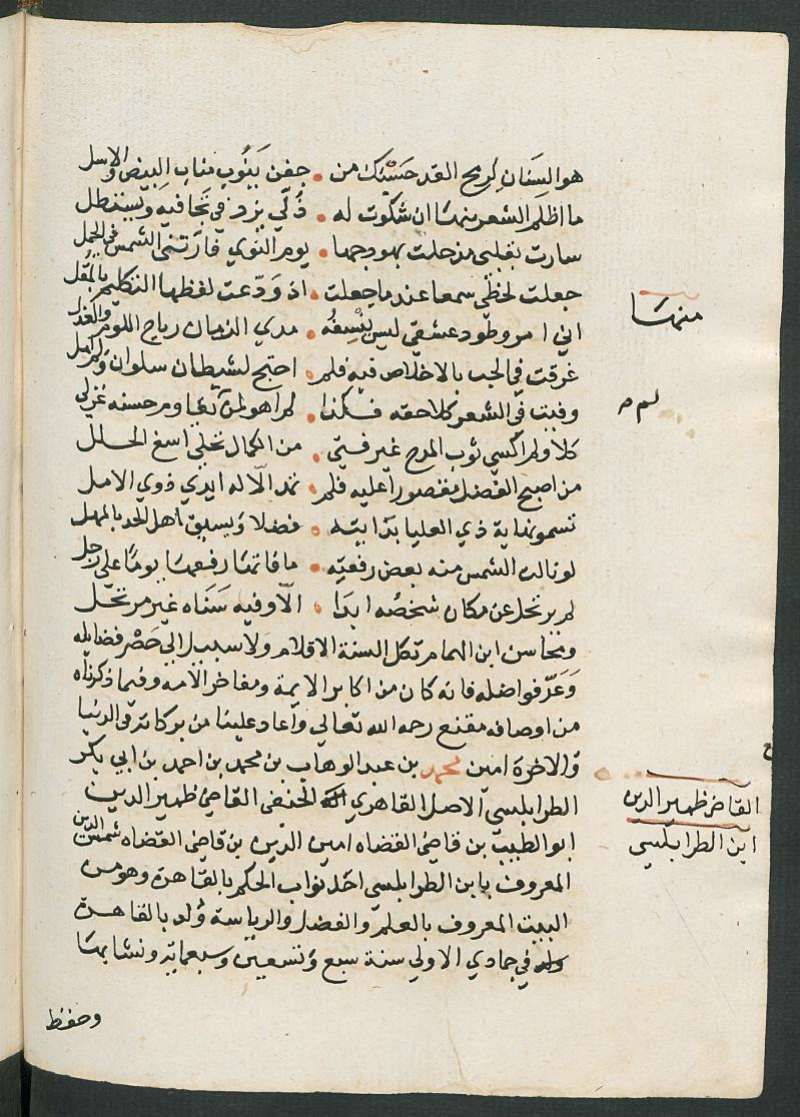 هو السنان لرمح القد حسنك من • جفن ينوب مناب البيض والاسل
ما اظلم الشعر منها ان شكوت له • ذلي يزد في تجافيه ويستطل
سارت بقلبي مذ حلت بهودجها • يوم النوي فارتني الشمس في الحمل
جعلت لحظي سمعا عند ما جعلت • اذ ودعت لفظها التكليم بالمقل
منها
اني امرو طود عشقي ليس ينسفه • مدي الزمان رياح اللوم والعذل
غرقت في الحب بالاخلاص فيه فلم • احتج لشيطان سلوان ولم امل
وفيت في الشعر كلا حقه فكذا • لم اهو لمن تقاوم حسنه غزلي
كلا ولم اكسي ثوب المدح غير فتي • من الكمال تحلي اسبغ الحلل
من اصبح الفضل مقصورا عليه فلم • تمد الا له ايدي ذوي الامل
تسمو نهاية ذي العليا بدايته • فضلا ويسبق اهل الجد بالمهل
لو نالت الشمس منه بعض رفعته • ما فاتها رفعها يوما علي زحل
لم يرتحل عن مكان شخصه ابدا • الا وفيه سناه غير مرتحل
ومحاسن ابن الهمام تكل السنة الاقلام ولا سبيل الي حصر فضايله
وعد فواضله فانه كان من اكابر الايمة ومفاخر الامه وفيما ذكرناه
من اوصافه مقنع رحمه الله تعالي واعاد علينا من بركاته في الدنيا
والاخرة امين محمد بن عبد الوهاب بن محمد بن احمد بن ابي بكر
القاضي ظهير الدين
ابن الطرابلسي
الطرابلسي الاصل القاهري الحنفي القاضي ظهير الدين
ابو الطيب بن قاضي القضاه امين الدين بن قاضي القضاه شمس الدين
المعروف بابن الطرابلسي احد نواب الحكم بالقاهرة وهو من
البيت المعروف بالعلم والفضل والرياسة ولد بالقاهرة
في جمادي الاولي سنة سبع وتسعين وسبعماية ونشا بها
وحفظ